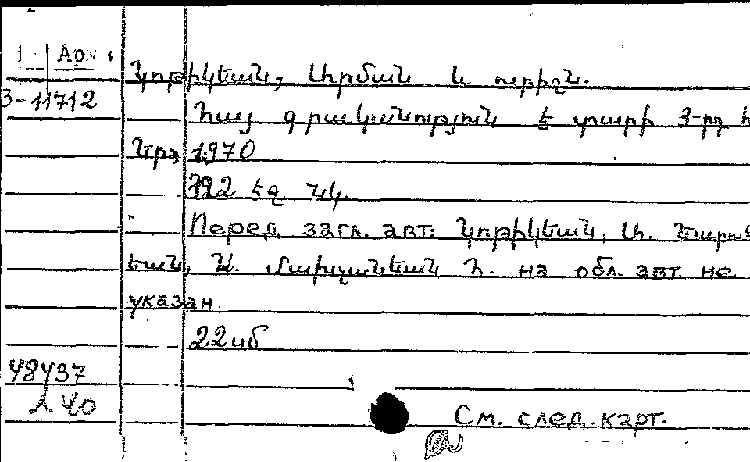 Арм
Կոթիկեան, Արման և ուրիշն.
3-11712
Հայ գրականություն Է տարի 3-րդ հ
Երև 1970
392 էջ նկ.
Перед загл. авт: Կոթիկեան, Ա.
եան, Ա. Հ. на обл. авт не
указан
22սմ
48437
2 40
См. след. карт.